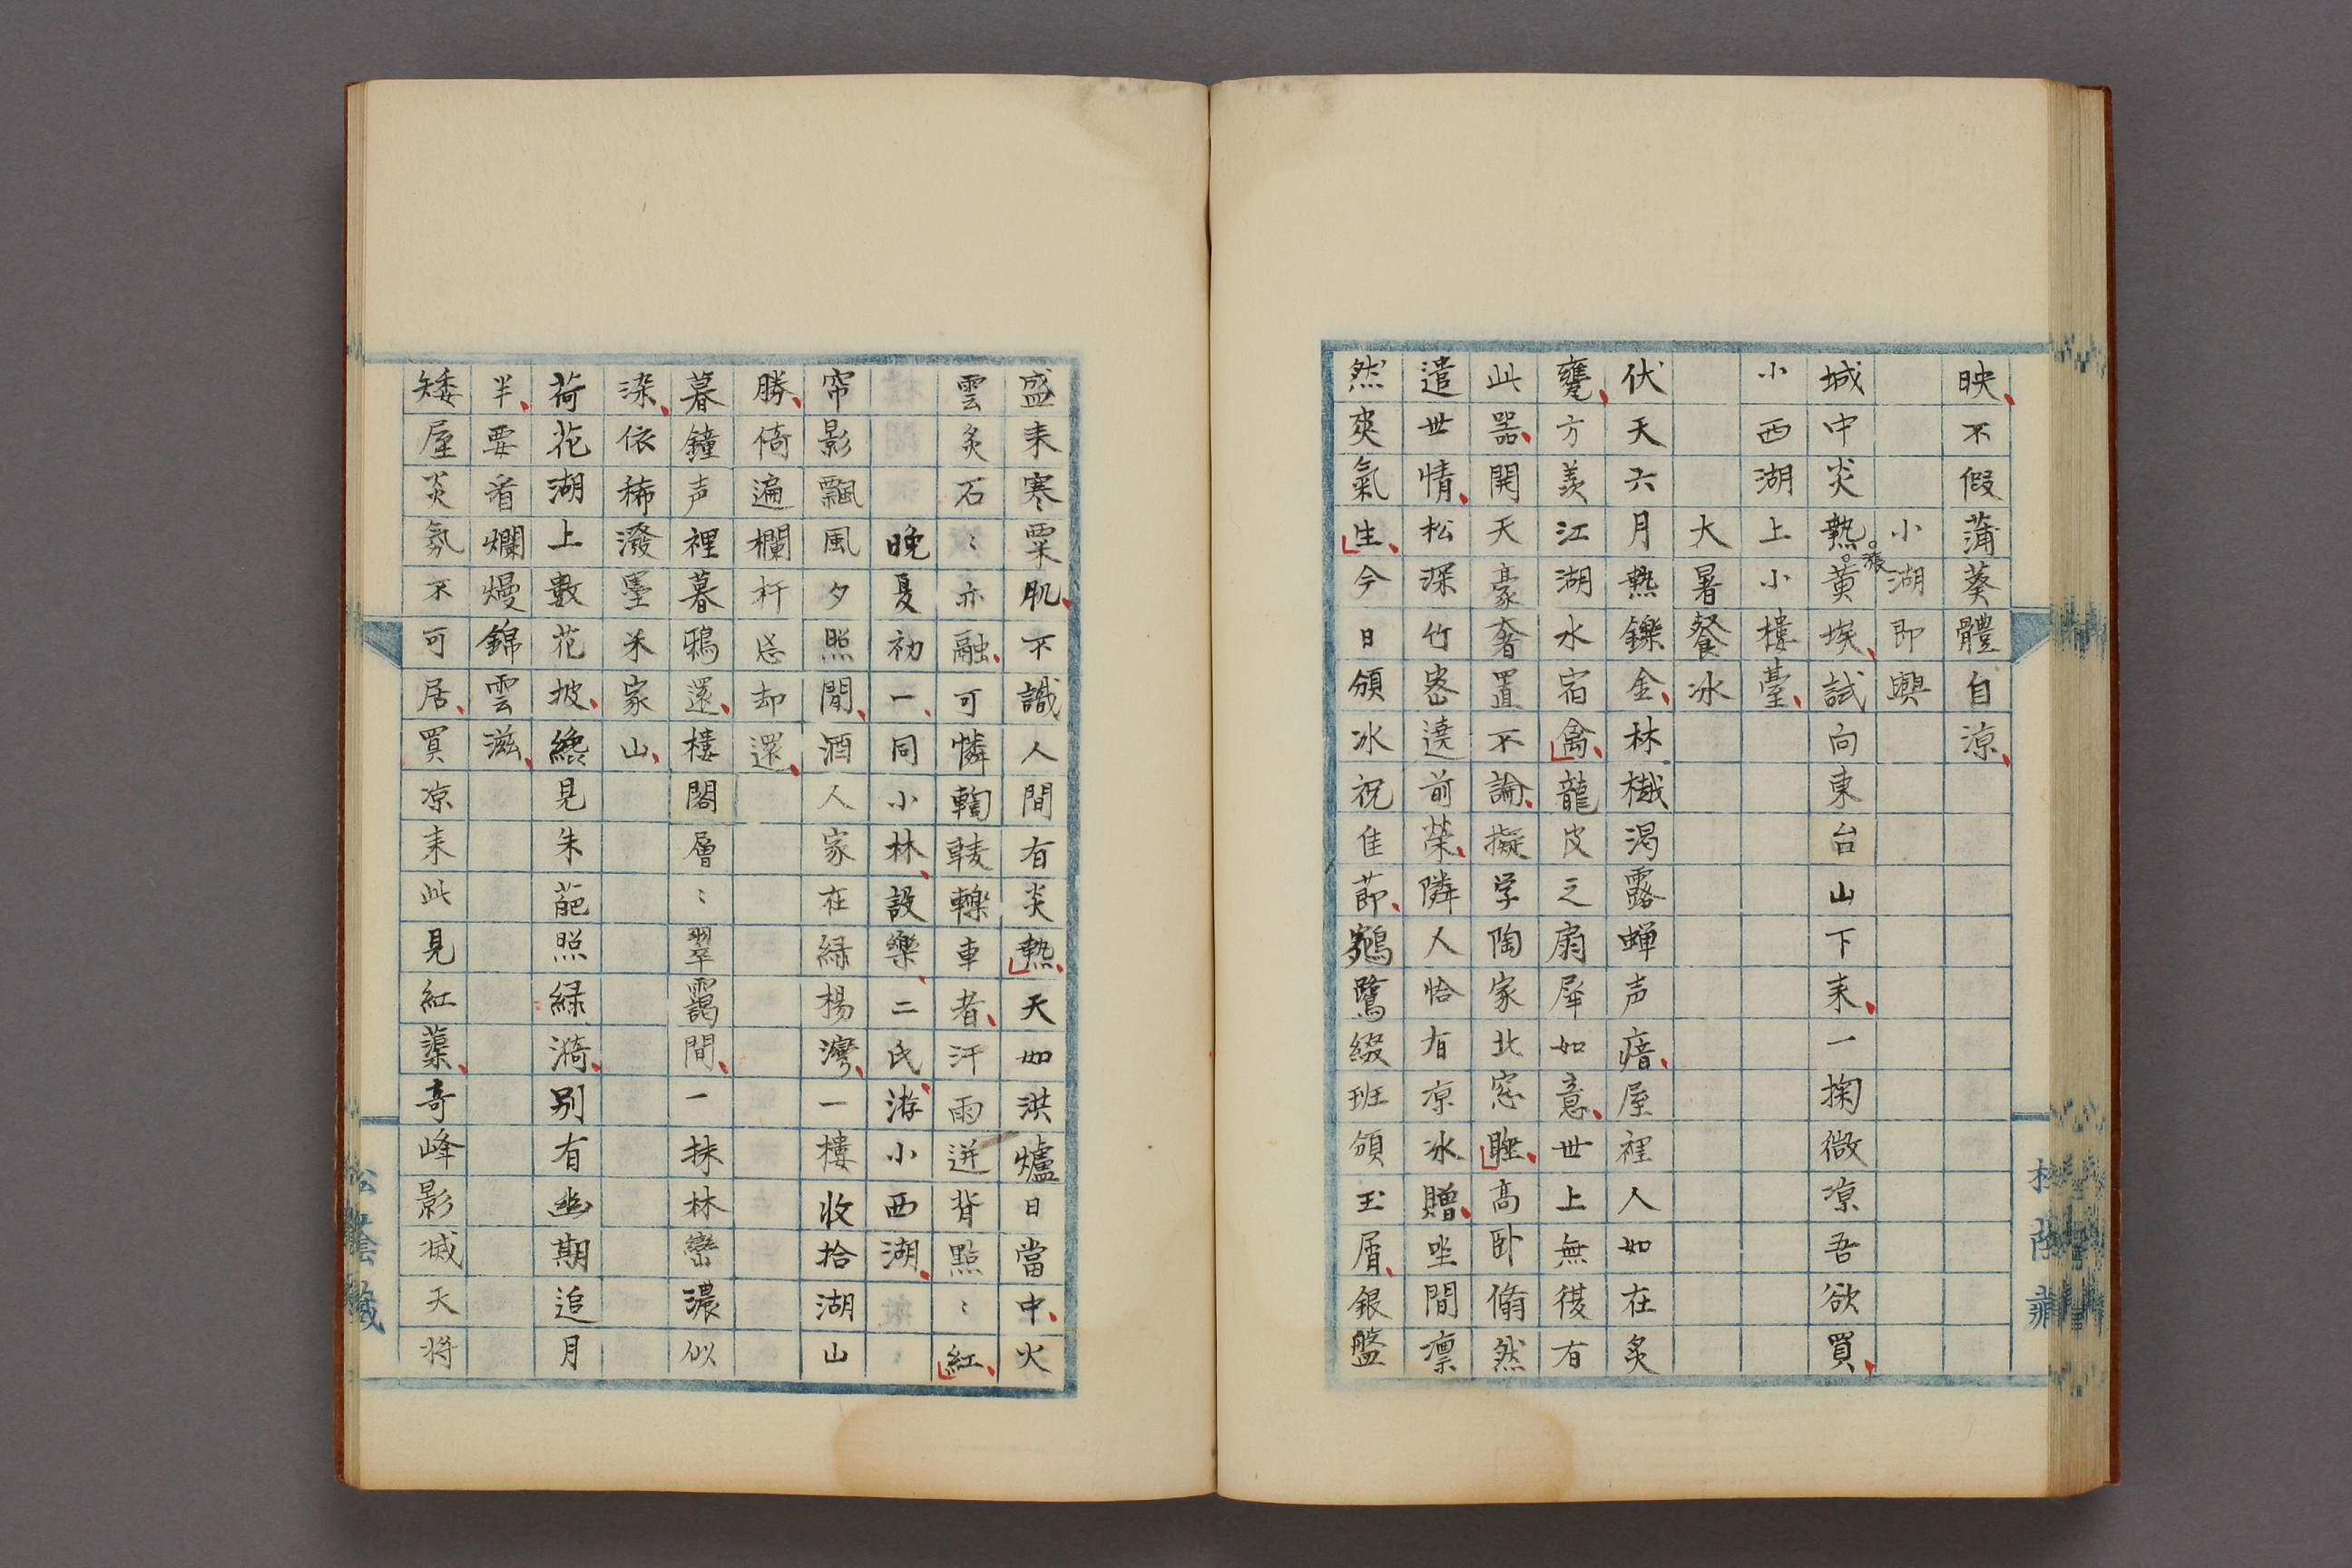 映不假蒲葵體自涼
小湖即興
城中炎熱漲黃埃試向東台山下来一掬微凉吾欲買
小西湖上小樓臺
大暑餐冰
伏天六月熱鑠金林樾渴露蝉声瘖屋裡人如在炙
甕方羨江湖水宿禽龍皮之扇犀如意世上無復有
此器開天豪奢置不論擬学陶家北窓睡高卧翛然
遣世情松深竹密遶前榮隣人恰有凉冰贈坐間凛
然爽氣生今日頒冰祝佳節鵷鷺綴班頒玉屑銀盤
盛来寒粟肌不識人間有炎熱天如洪爐日當中火
雲炙石〻亦融可憐輷輘轢車者汗雨迸背點〻紅
晚夏初一同小林設樂二氏游小西湖
帘影飄風夕照閒酒人家在緑楊灣一樓收拾湖山
勝倚遍欄杆忘却還
暮鐘声裡暮鴉還樓閣層〻翠靄間一抹林巒濃似
染依稀潑墨米家山
荷花湖上數花披纔見朱葩照緑漪別有幽期追月
半要看爛熳錦雲滋
矮屋炎氛不可居買凉来此見紅蕖奇峰影滅天将
松陰